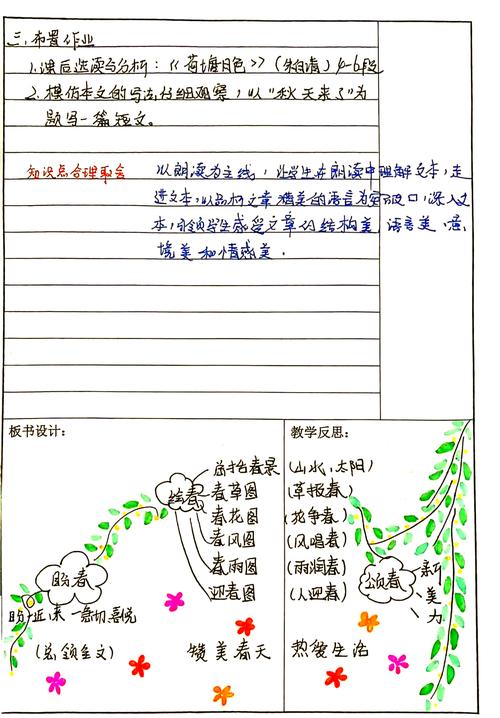 三、布置作业
1.课后选读与分析：《荷塘月色》（朱自清）4-6段
2.模仿本文的写法仔细观察，以“秋天来了”为
题写一篇短文。
知识点合理融会
以朗读为主线，让学生在朗读中理解文本，走
进文本，以品析文章精美的语言为突破口，深入文
本，引领学生感受文章的结构美，语言美，意
境美和情感美。
板书设计：
绘春
总括春景
春草图
春花图
春风图
春雨图
迎春图
盼春
盼 近 来 一 切 喜悦
（总领全文）
赞美春天
教学反思：
（山、水、太阳）
（草报春）
（花争春）
（风唱春）
（雨润春）
（人迎春）
颂春
新
美
力
热爱生活